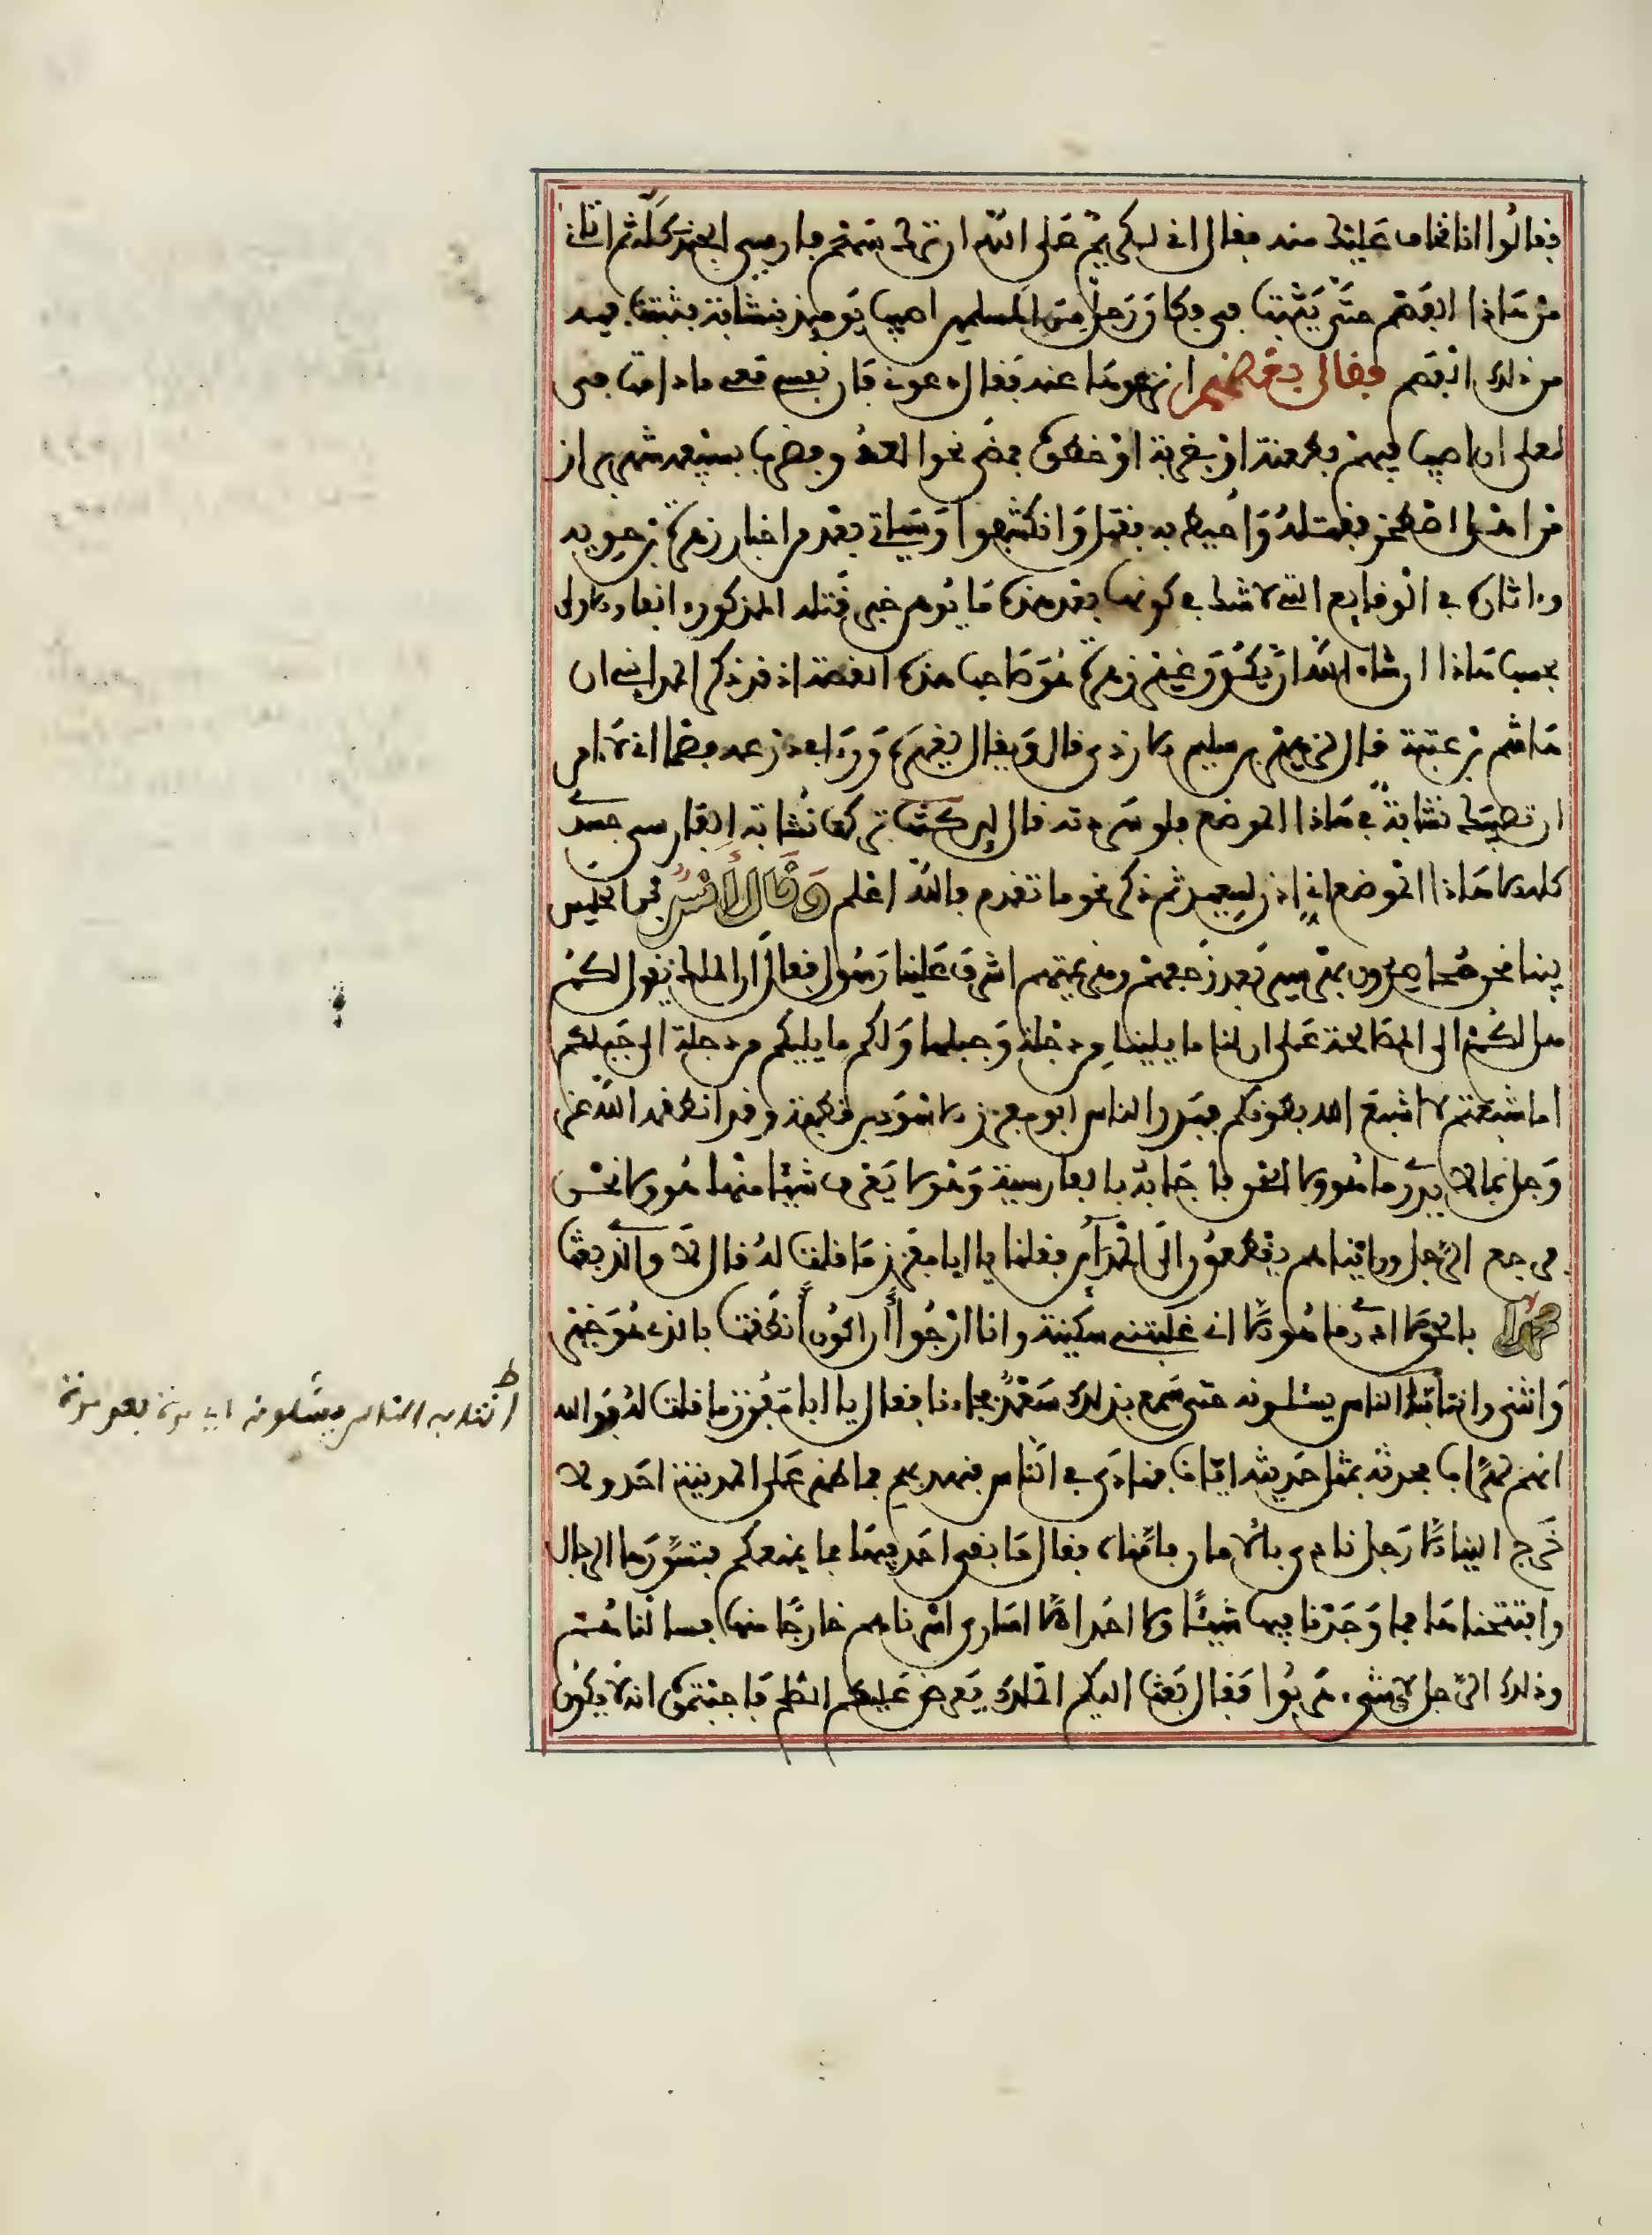 فقالوا انا نخاف عليك منه فقال اني لكريم على الله ان ترك سهم فارسي الجند كله ثم اتاني
من هاذا الفصم حتى يثبت في فكان رجل من المسلمين اصيب يوميذ بنشابة فثبتت فيه
من ذلك الفصم فقال بعضهم انزعوها عنه فقال دعوني فان نفسي معي ما دامت في
لعلي ان اصيب فيهم بطعنة او ضربة او خطوة فمضى نحو العدو فضرب بسيفه شهربراز
من اهل اصطخر فقتله وأحيط به فقتل وانكشفوا وسياتي بعد من اخبار زهرة بن حوية
وءاثاره في الوقايع التي لا شك في كونها بعد هذه ما يوهن خبر قتله المذكور ءانفا والاولى
بحسب هاذا ان شاء الله ان يكون غير زهرة هو صاحب هذه القصة اذ قد ذكر المدايني ان
هاشم بن عتبة قال لزهير بن سليم الازدي قال ويقال لغيره ورءا في درعه فصما اني لا ءامن
ان تصيبك نشابة في هاذا الموضع فلو سردته قال لين تركت نشابة الفارسي جسدي
كله الا هاذا الموضع اني اذا لسعيد ثم ذكر نحو ما تقدم فالله اعلم وقال أنس بن الحليس
بينا نحن محاصرون بهرسير بعد زحفهم وهزيمتهم اشرف علينا رسول فقال ان الملك يقول لكم
هل لكم الى المصالحة على ان لنا ما يلينا من دجلة وجبلنا ولكم ما يليكم من دجلة الى جبلكم
اما شبعتم لا اشبع الله بطونكم فبدر الناس ابو مفزر الاسود بن قطبة وقد انطقه الله عز
وجل بما لا يدري ما هو ولا نحن فاجابه بالفارسية وهو لا يعرف شيئا منها هو ولا نحن
فرجع الرجل ورايناهم يقطعون الى المداين فقلنا يا ابا مفزر ما قلت له قال لا والذي بعث
محمدا بالحق ما ادري ما هو الا اني غلبتني سكينة وانا ارجوا ان اكون انطقت بالذي هو خير
وانثنى وانتاب الناس يسئلونه حتى سمع بذلك سعد فجاءنا فقال يا ابا مفزر ما قلت له فوالله
انهم لهراب فحدثه بمثل حديثه ايانا فنادى في الناس فنهد بهم فما ظهر على المدينة احد ولا
خرج الينا الا رجل نادى بالامان فامناه فقال ما بقي احد فيها فما يمنعكم فتسورها الرجال
وافتتحناها فما وجدنا فيها شيئا ولا احدا الا اسارى اسرناهم خارجا منها فسالناهم
وذلك الرجل لاي شيء هربوا فقال بعث اليكم الملك يعرض عليكم الصلح فاجبتموه انه لا يكون
ط
انتدب الناس يسئلونه